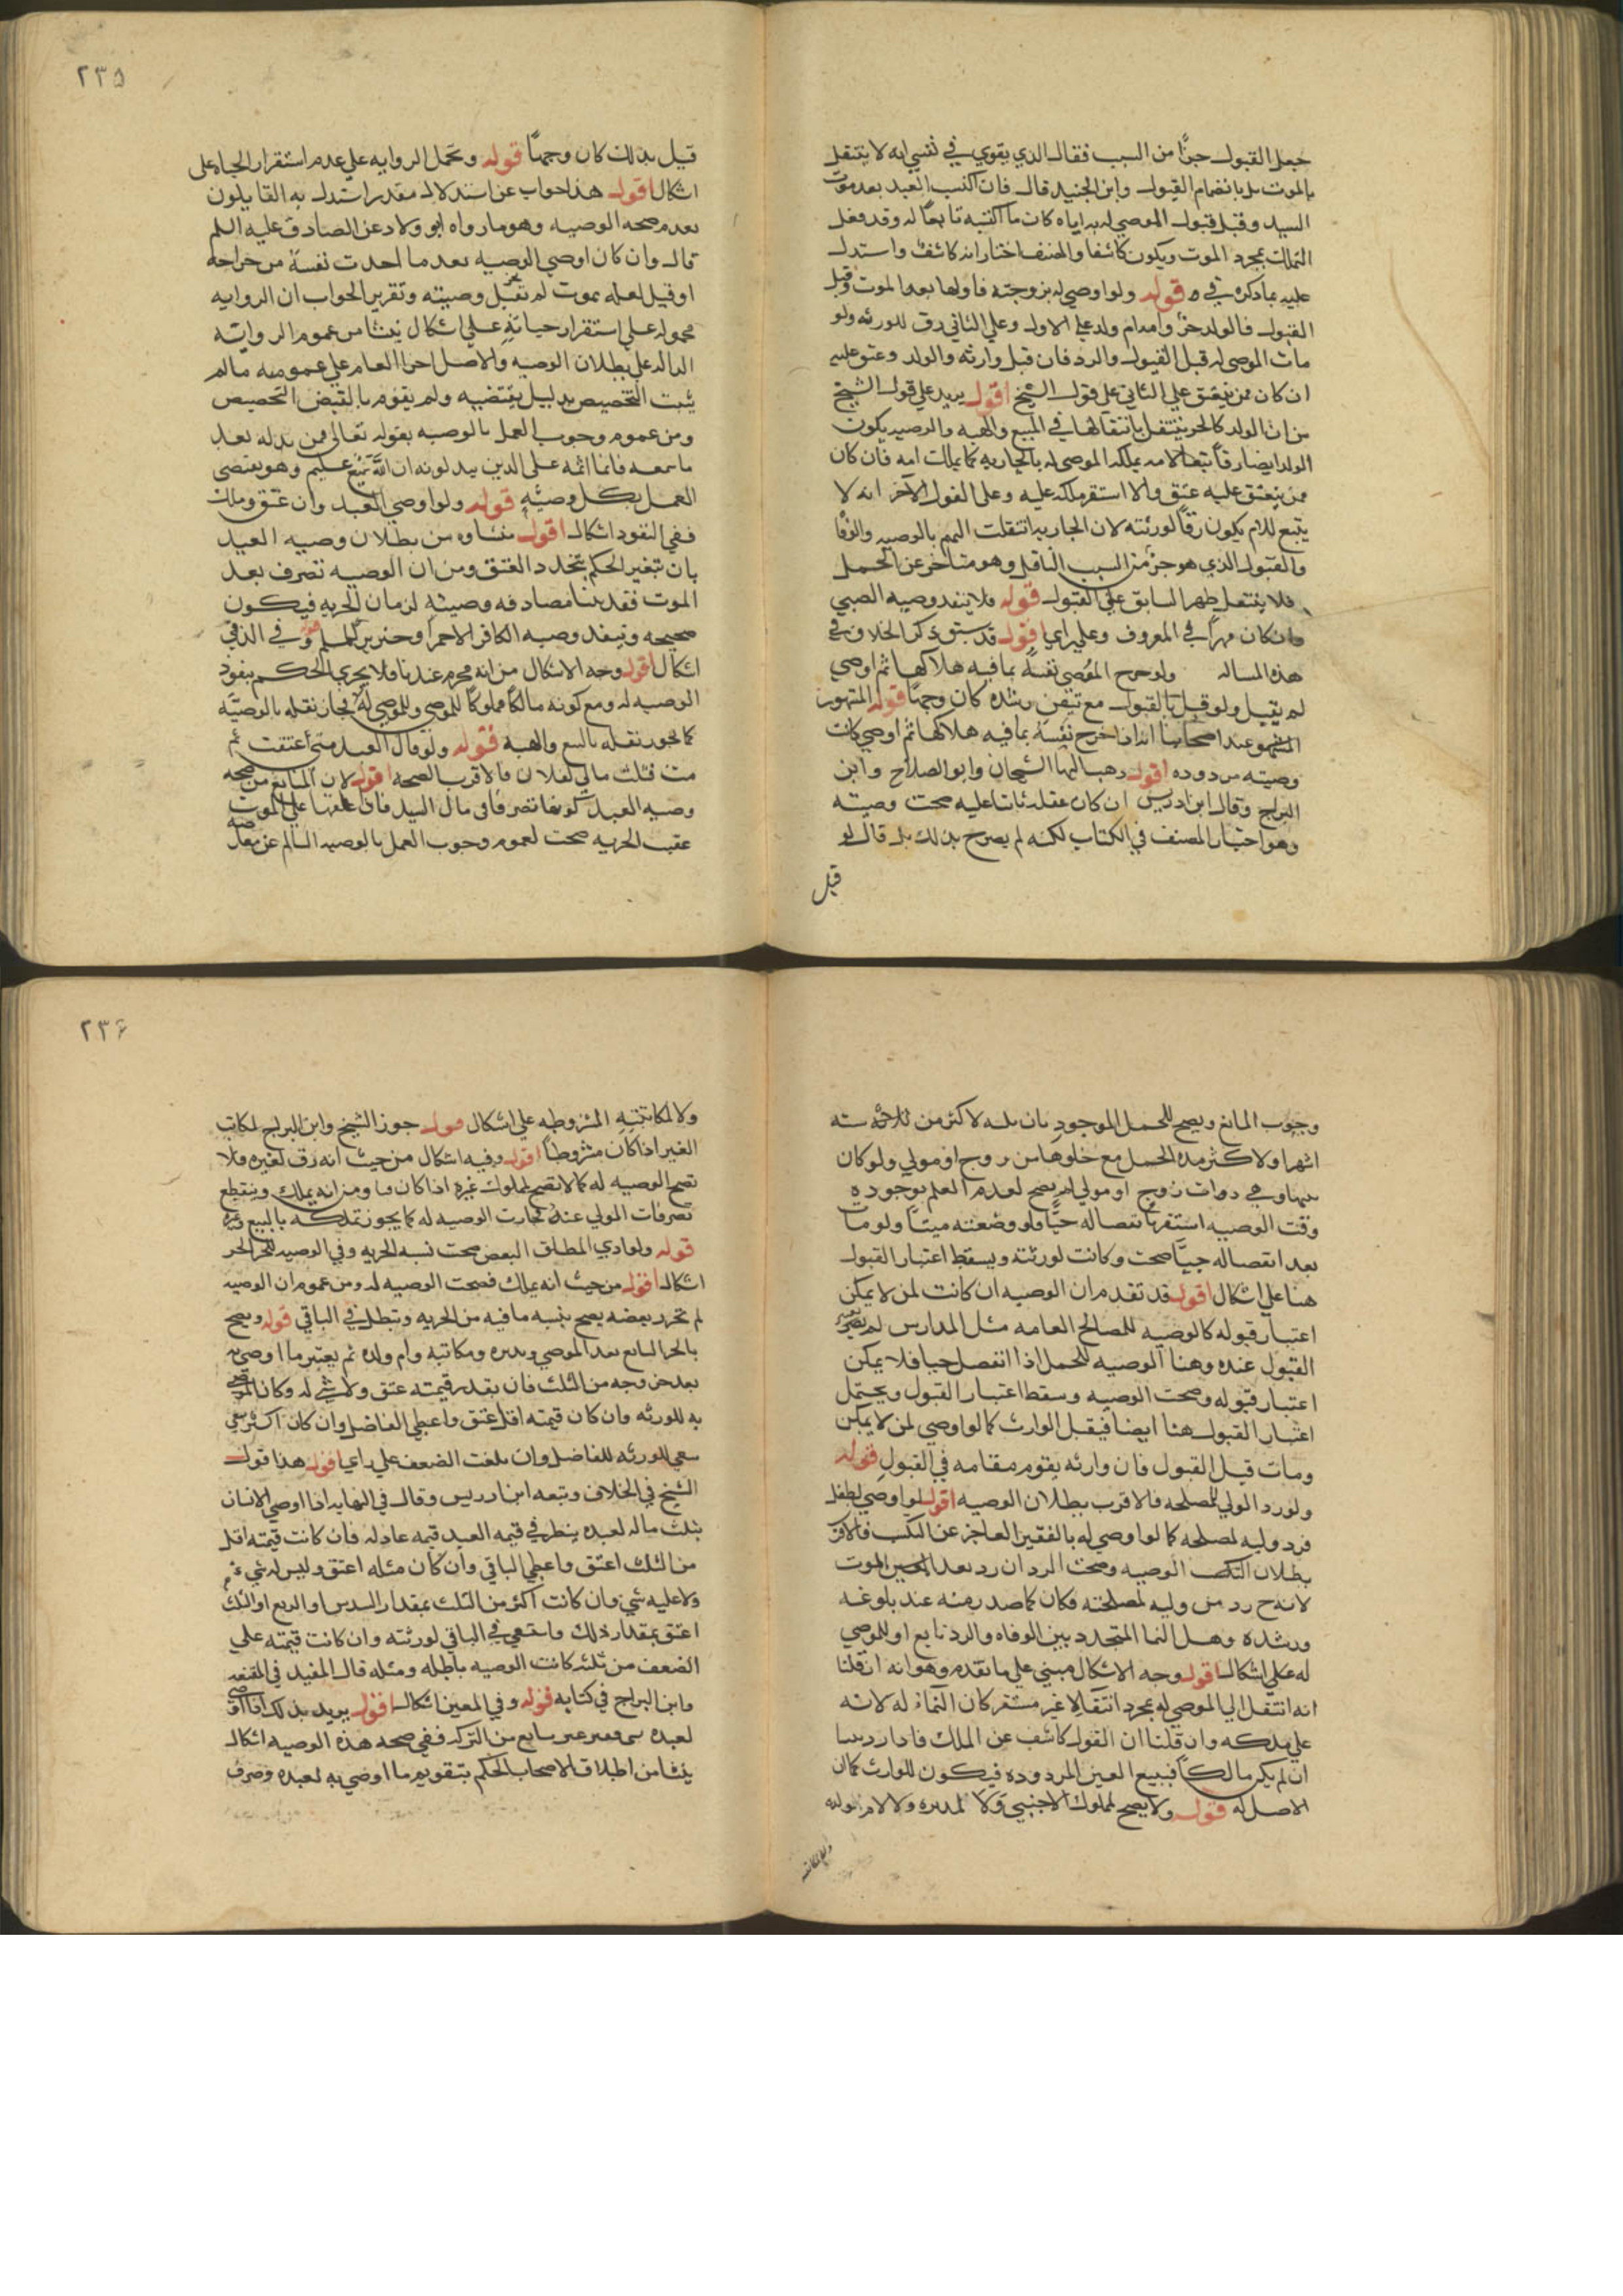 جعل القبول جزءًا من السبب فقال الذي يقوي في نفسي انه لا ينتقل
بالموت بل بانضمام القبول وابن الجنيد قال فان اكتسب العبد بعد موت
السيد وقبل قبول الموصي له به اياه كان ما اكتسبه تابعًا له وقد
التملك بمجرد الموت ويكون كاشفا والمصنف اختار انه كاشف واستدل
عليه بما ذكره في قوله ولو اوصي له بزوجته فاولدها بعد الموت وقبل
القبول فالولد حر وامه ام ولد علي الاول وعلي الثاني رق للورثه ولو
مات الموصي له قبل القبول والرد فان قبل وارثه والولد وعتق عليه
ان كان ممن ينعتق علي الثاني علي قول الشيخ اقول يريد علي قول الشيخ
من ان الولد كالجزء ينتقل بانتقالها في المبيع والهبه والوصيه يكون
الولد ايضا رقا تبعا لامه يملكه الموصي له بالجاريه كما يملك امه فان كان
ممن ينعتق عليه عتق والا استقر ملكه عليه وعلي القول الآخر انه لا
يتبع للام يكون رقا لورثته لان الجاريه انتقلت اليهم بالوصيه والوفا
والقبول الذي هو جزء من السبب الناقل وهو متاخر عن الحمل
فلا ينتقل السابق علي القبول قوله فلا ينفذ وصيه الصبي
وان كان مميزا في المعروف وعلي راي اقول قد سبق ذكر الخلاف في
هذه المساله ولو جرح الموصي نفسه بما فيه هلاكها ثم اوصي
لم يقبل ولو قيل بالقبول مع تيقن رشده كان وجها قوله المشهور
عند اصحابنا انه اذا جرح نفسه بما فيه هلاكها ثم اوصي كانت
وصيته مردوده اقول ذهب اليها الشيخان وابو الصلاح وابن
البراج وقال ابن ادريس ان كان عقله ثابتا عليه صحت وصيته
وهو اختيار المصنف في الكتاب لكنه لم يصرح بذلك بل قال لو
قيل
٢٣٥
قيل بذلك كان وجهًا قوله وتحمل الروايه علي عدم استقرار الحياه علي
اشكال اقول هذا جواب عن استدلال مقدر استدل به القايلون
بعدم صحه الوصيه وهو ما رواه ابو ولاد عن الصادق عليه السلم
قال وان كان اوصي الوصيه بعد ما احدث نفسه من جراحه
او قيل لعله يموت لم تقبل وصيته وتقرير الجواب ان الروايه
محموله علي استقرار حياته علي اشكال ينشا من عموم الروايه
الداله علي بطلان الوصيه والاصل اجرا العام علي عمومه ما لم
يثبت التخصيص بدليل يقتضيه ولم يقوم التخصيص
ومن عموم وجوب العمل بالوصيه بقوله تعالى فمن بدله بعد
ما سمعه فانما اثمه على الذين يبدلونه ان الله سميع عليم وهو يقتضي
العمل بكل وصيه قوله ولو اوصي العبد وان عتق وملك
ففي النفوذ اشكال اقول منشاوه من بطلان وصيه العبد
بان تغير الحكم بتجدد العتق ومن ان الوصيه تصرف بعد
الموت فقد مصادفه وصيته لزمان الحريه فيكون
صحيحه وتنفذ وصيه الكافر الا خمرا وخنزيرا لمسلم وفي الذمي
اشكال اقول وجه الاشكال من انه محرم عندنا فلا يجري الحكم بنفوذ
الوصيه له ومع كونه مالكا مملوكا للموصي وللموصي له فجاز نقله بالوصيه
كما يجوز نقله بالبيع والهبه قوله ولو قال العبد متي اعتقت ثم
مت فثلث مالي لفلان فالاقرب الصحه اقول لان المانع من صحه
وصيه العبد كونها تصرفا في مال السيد فاذا علقها علي الموت
عقيب الحريه صحت لعموم وجوب العمل بالوصيه السالم عن معارضه
وجوب المانع ويصح للحمل الموجود بان تلده لاكثر من ثلاثه سته
اشهر ولاكثر مده الحمل مع خلوها من زوج او مولي ولو كان
بينهما وهي ذوات زوج او مولي لم يصح لعدم العلم بوجوده
وقت الوصيه استقر بانفصاله حيًا فلو وضعته ميتا ولو مات
بعد انفصاله حيًا صحت وكانت لورثته ويسقط اعتبار القبول
هنا علي اشكال اقول قد تقدم ان الوصيه ان كانت لمن لا يمكن
اعتبار قبوله كالوصيه للمصالح العامه مثل المدارس لم
القبول عنده وهنا الوصيه للحمل اذا انفصل حيا فلا يمكن
اعتبار قبوله وصحت الوصيه وسقط اعتبار القبول ويحتمل
اعتبار القبول هنا ايضا فيقبل الوارث كما لو اوصي لمن لا يمكن
ومات قبل القبول فان وارثه يقوم مقامه في القبول قوله
ولو رد المولي للمصلحه فالاقرب بطلان الوصيه اقول لو اوصي لطفل
فرد وليه لمصلحه كما لو اوصي له بالفقير العاجز عن الكسب فالاقرب
بطلان الوصيه وصحت الرد ان رد بعد الموت
لانه ح رد من وليه لمصلحته فكان كما صدر منه عند بلوغه
ورشده وهل النما المتجدد بين الوفاه والرد تابع او للموصي
له علي اشكال اقول وجه الاشكال مبني علي ما تقدم وهو انه ان قلنا
انه انتقل الي الموصي له بمجرد انتقالا غير مستقر كان النماء له لانه
علي ملكه وان قلنا ان القبول كاشف عن الملك فاذا رد تبينا
ان لم يكن مالكا فيبيع العين المردوده فيكون للوارث كما ان
الاصل له قوله ولا يصح لمملوك الاجنبي ولا لمدبره ولا لام ولده
ولا لمكاتبه
٢٣۶
ولا لمكاتبته المشروطه علي اشكال قوله جوز الشيخ وابن البراج لمكاتب
الغير اذا كان مشروطا اقول وفيه اشكال من حيث انه رق لغيره فلا
تصح الوصيه له كما لا تصح لمملوك غيره اذا كان قنا ومن انه يملك وينقطع
تصرفات المولي عنه فجازت الوصيه له كما يجوز تملكه بالبيع وغيره
قوله ولو ادي المطلق البعض صحت نسبه الحريه وفي الوصيه للجزء الحر
اشكال اقول من حيث انه يملك فصحت الوصيه له ومن عموم ان الوصيه
لم تحرر بعضه يصح بنسبه ما فيه من الحريه وتبطل في الباقي قوله ويصح
بالجزء الشايع لعبد الموصي ومدبره ومكاتبه وام ولده ثم يعتبر ما اوصي به
بعد خروجه من الثلث فان بقدر قيمته عتق ولا شي له وكان الموصي
به للورثه وان كان قيمته اقل عتق واعطي الفاضل وان كان اكثر سعي
سعي للورثه للفاضل وان بلغت الضعف علي راي اقول هذا قول
الشيخ في الخلاف وتبعه ابن ادريس وقال في النهايه اذا اوصي الانسان
بثلث ماله لعبده ينظر في قيمه العبد قيمه عادله فان كانت قيمته اقل
من الثلث اعتق واعطي الباقي وان كان مثله اعتق وليس له شي
ولا عليه شي وان كانت اكثر من الثلث بمقدار السدس او الربع او الثلث
اعتق بمقدار ذلك واستسعي في الباقي لورثته وان كانت قيمته علي
الضعف من ثلثه كانت الوصيه باطله ومثله قال المفيد في المقنعه
وابن البراج في كتابه قوله وفي المعين اشكال اقول يريد بذلك اذا اوصي
لعبده معين غير شايع من التركه ففي صحه هذه الوصيه اشكال
ينشا من اطلاق الاصحاب الحكم بتقويم ما اوصي به لعبده وصرف